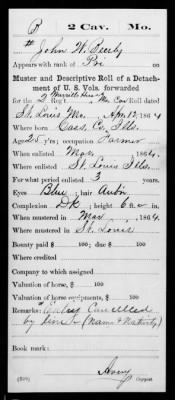 B 2 Cav. Mo.
John W. Beerly
Appears with rank of Pvi on
Muster and Descriptive Roll of a Detach-
ment of U. S. Vols. forwarded
for the 2 Reg't Mo Cav Roll dated
St. Louis Mo. Apr 12, 1864
Where born Cass, Co, Ills.
Age 25 y'rs; occupation Farmer
When enlisted Mar, 1864.
Where enlisted St. Louis Ills.
For what period enlisted 3 years.
Eyes Blue; hair Aubn
Complexion Dk; height 6 ft. in.
When mustered in Mar, 1864
Where mustered in St. Louis
Bounty paid $ 100; due $ 100
Where credited
Company to which assigned
Valuation of horse, $ 100
Valuation of horse equipments, $ 100
Remarks: Entry Cancelled
by line (Name & Nativity)
Avery
Copyist.